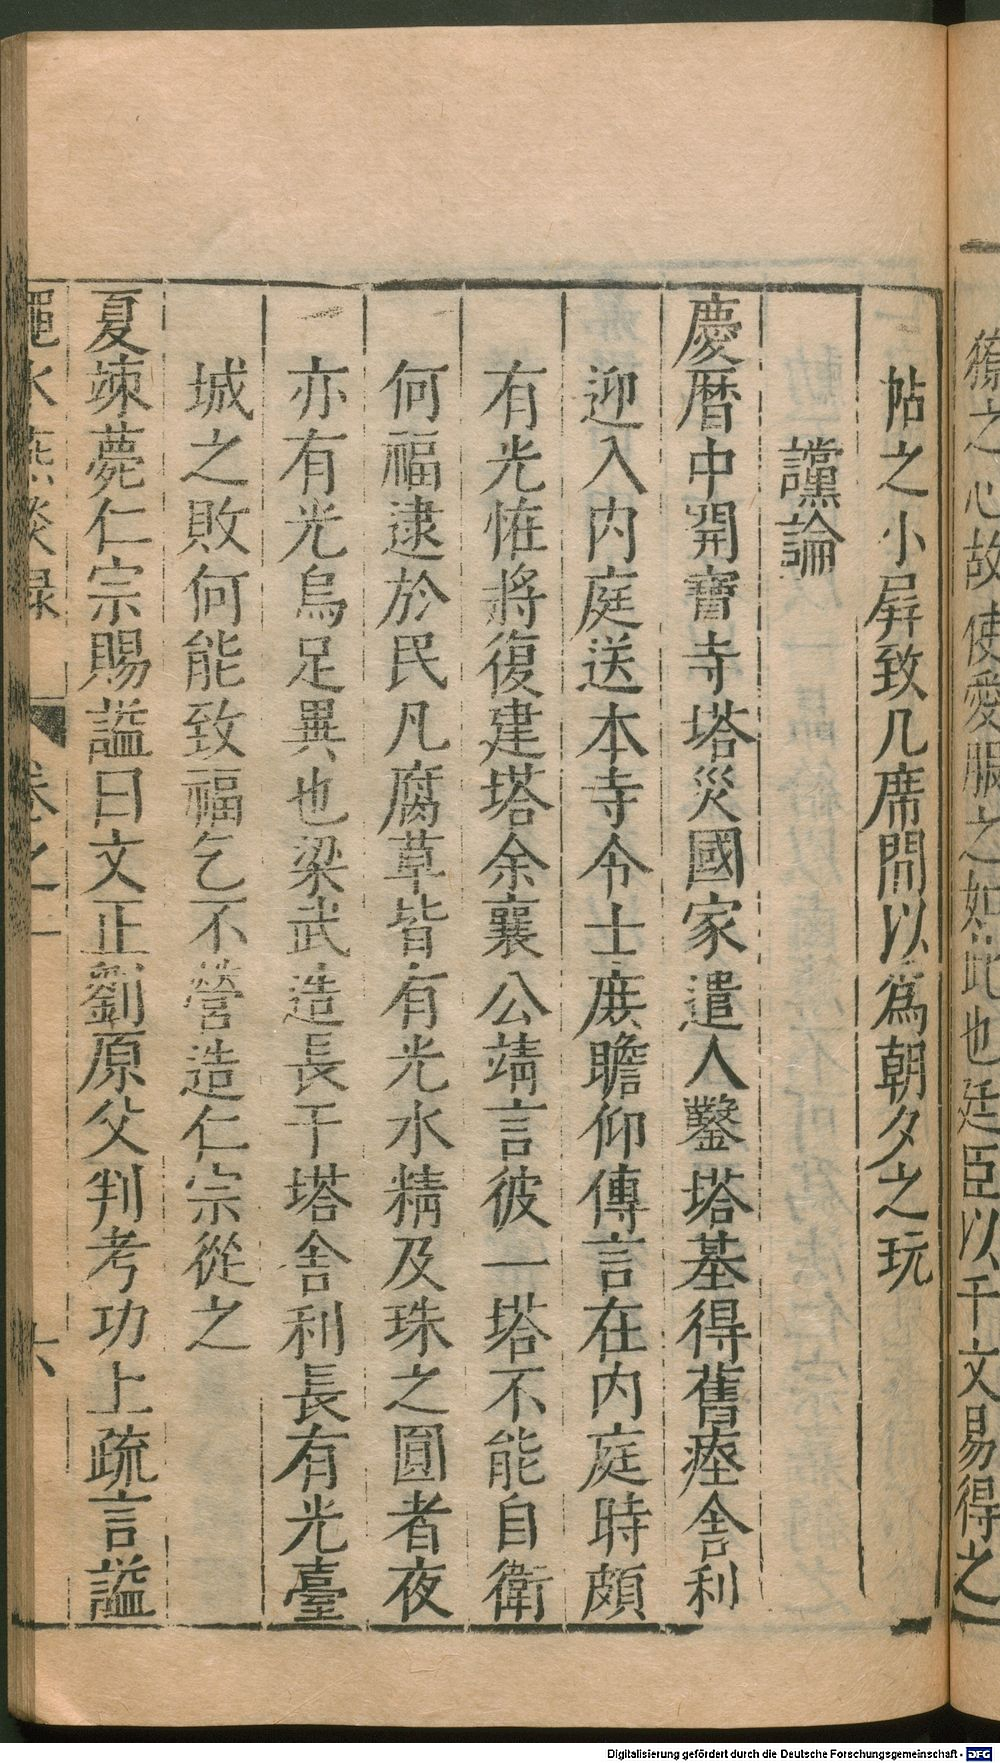 獠之心故使愛服之如此也廷臣以千文易得之
帖之小屏致几席間以爲朝夕之玩
讜論
慶曆中開寶寺塔災國家遣人鑿塔基得舊瘞舍利
迎入内庭送本寺令士庶瞻仰傳言在内庭時頗
有光恠將復建塔余襄公靖言彼一塔不能自衛
何福逮於民凡腐草皆有光水精及珠之圓者夜
亦有光烏足異也梁武造長干塔舍利長有光臺
城之敗何能致福乞不營造仁宗從之
夏竦薨仁宗賜謚曰文正劉原父判考功上疏言謚
澠水燕談録 卷之一 六
Digitalisierung gefördert durch die Deutsche Forschungsgemeinschaft - DFG